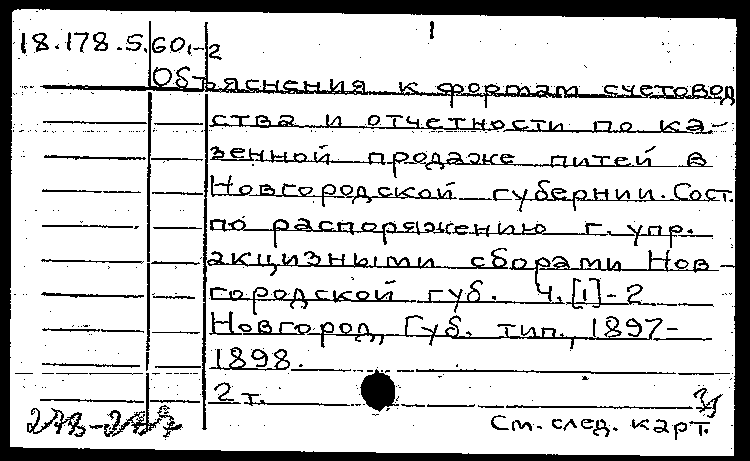 18.178.5.60,-2
Объяснения к формам счетовод
ства и отчетности по ка-
зенной продаже питей в
Новгородской губернии. Сост.
по распоряжению г. упр.
акцизными сборами Нов-
городской губ. Ч. [1]-2
Новгород, Губ. тип., 1897-
1898.
2 т.
См. след. карт.